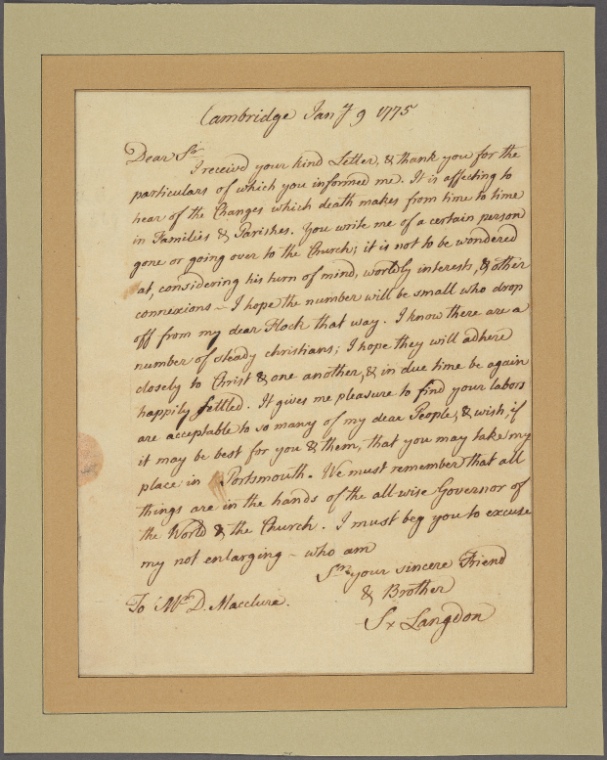 Cambridge Jany 9 1775
Dear Sr
I receivd your kind Letter, & thank you for the
particulars of which you informed me. It is affecting to
hear of the Changes which death makes from time to time
in Families & Parishes. You write me of a certain person
gone or going over to the Church; it is not to be wondered
at, considering his turn of mind, worldly interests, & other
connexions – I hope the number will be small who drop
off from my dear Flock that way. I know there are a
number of steady christians; I hope they will adhere
closely to Christ & one another, & in due time be again
happily settled. It gives me pleasure to find your labors
are acceptable to so many of my dear People, & wish, if
it may be best for you & them, that you may take my
place in Portsmouth. We must remember that all
things are in the hands of the all-wise Governor of
the World & the Church. I must beg you to excuse
my not enlarging – who am
Sr your sincere Friend
& Brother
Sl Langdon
To Mr D. Macclure.